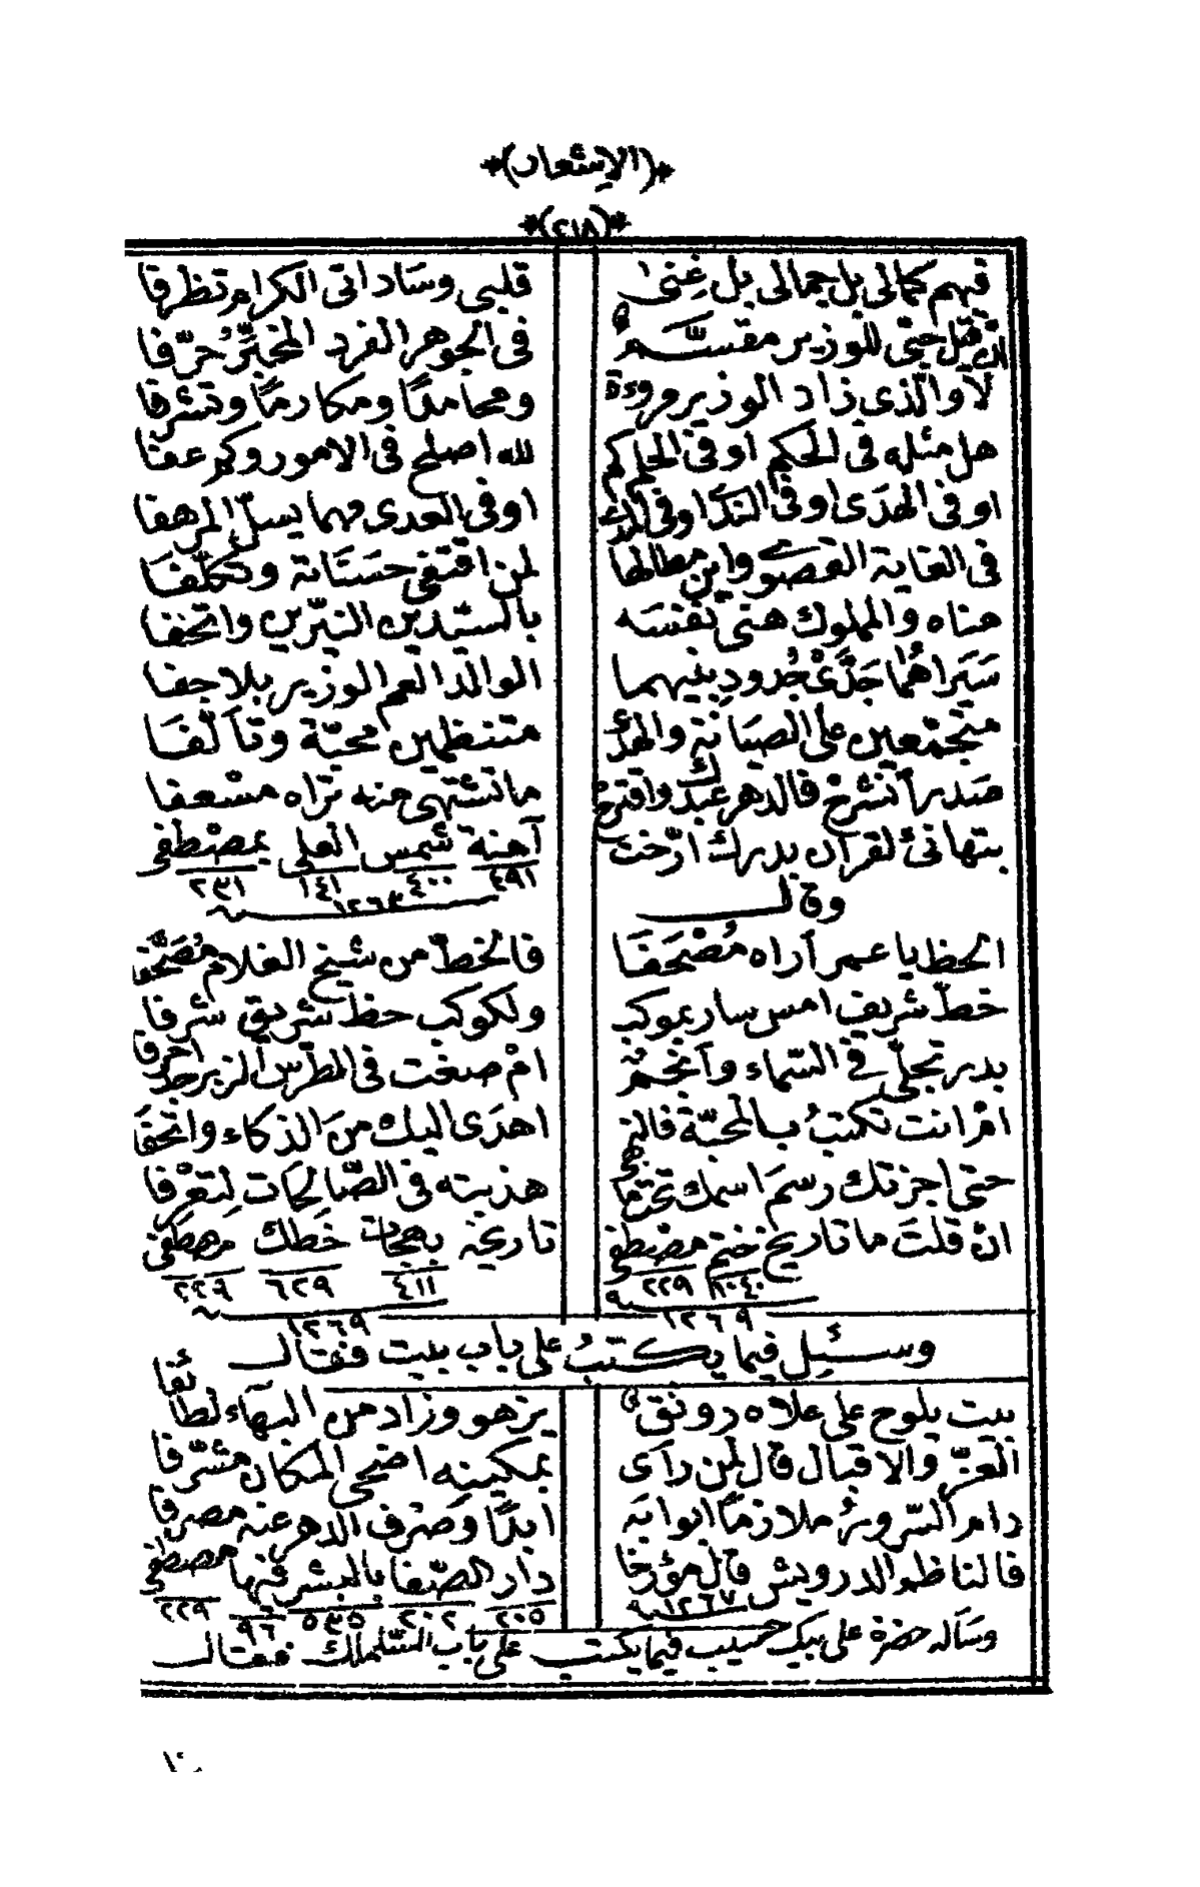 *(الإشعار)*
*(٢١٨)*
فبهم كمالى بل جمالى بل غنى قلبى وساداتى الكرام تظرفا
ان قيل حبى للوزير مقسّم فى الجوهر الفرد المخيّر حرّفا
لا والّذى زاد الوزير مروءة ومحامدًا ومكارمًا وتشرفا
هل مثله فى الحكم او فى الحلم كم لله اصلح فى الامور وكم عفا
او فى الهدى او فى الندى او فى العدى مهما يسلّ المرهفا
فى الغاية القصوى واين مطالها لمن اقتفى حسناته وتكلّفا
هناه والمملوك هنى نفسه بالسيّدين النيّرين واتحفا
سَيَراهُما جَدَّىْ جُدودِ بنيهما الوالد العم الوزير بلا جفا
متجمّعين على الصيانة والهدى متنظمين محبّة وتآلفا
صدر انشرح فالدهر عبدك واقترح ما تشتهى منه تراه مسعفا
بتهانئ لقران بدرك ارّخت آهنة شمس العلى بمصطفى
٤٩١ ٤٠٠ ١٤١ ٢٣١
١٢٦٣
وقال
الحظ يا عمر آراه مُصْحَفَا فالخطّ من شيخ الغلام مُصَحَّفا
خطّ شريف امس سار بموكب ولكوكب حظ شريق شرفا
بدر تجلّى فى السّماء وآنجم امْ صغت فى الطّرس الزبرجد احرفا
امْ انت تكتبُ بالمحبّة فالنهى اهدى اليك منَ الذكاء واتحفَ
حتى اجزتك رسمَ اسمك تحترما هذبته فى الصّالحات لِتعرْفا
ان قلتَ ما تاريخ ختم مصطفى تاريخه بهجات خَطك مصطفى
١٠٤٠ ٢٢٩ ٤١١ ٦٢٩ ٢٢٩
١٢٦٩ ١٢٦٩
وسئِل فيما يكتبُ على باب بيت فقال
بيت يلوح على علاه رونق يزهو وزاد من البهاء لطائفا
العزّ والاقبال قال لمن رآى بمكينه اضحى المكان مشرّفا
دام السّرورُ ملازمًا ابوابه ابدًا وصَرف الدهر عنه مصرفا
فالناظم الدرويش قال مؤرخا دار الصّفا بالبشر فيها مصطفى
١٢٦٧ ٢٠٥ ٢٠٢ ٥٣٥ ٩٦ ٢٢٩
وسآله حضرة على بيك حسيب فيما يكتب على باب السّلاملك فقال